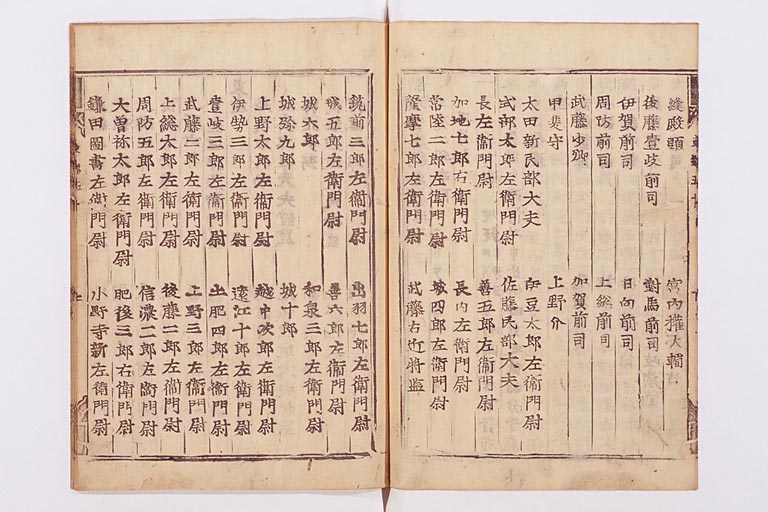 縫殿頭 宮内権大輔
後藤壹岐前司 對馬前司
伊賀前司 日向前司
周防前司 上総前司
武藤少卿 加賀前司
甲斐守 上野介
太田新民部大夫 伊豆太郎左衛門尉
式部太郎左衛門尉 佐藤民部大夫
長左衛門尉 善五郎左衛門尉
加地七郎右衛門尉 長内左衛門尉
常陸二郎左衛門尉 城四郎左衛門尉
薩摩七郎左衛門尉 武藤右近将監
筑前三郎左衛門尉 出羽七郎左衛門尉
城五郎左衛門尉 善六郎左衛門尉
城六郎 和泉三郎左衛門尉
城弥九郎 城十郎
上野太郎左衛門尉 越中次郎左衛門尉
伊勢三郎左衛門尉 遠江十郎左衛門尉
壹岐三郎左衛門尉 土肥四郎左衛門尉
武藤二郎左衛門尉 上野三郎左衛門尉
上総太郎左衛門尉 後藤二郎左衛門尉
周防五郎左衛門尉 信濃二郎左衛門尉
大曽祢太郎左衛門尉 肥後三郎右衛門尉
鎌田圖書左衛門尉 小野寺新左衛門尉